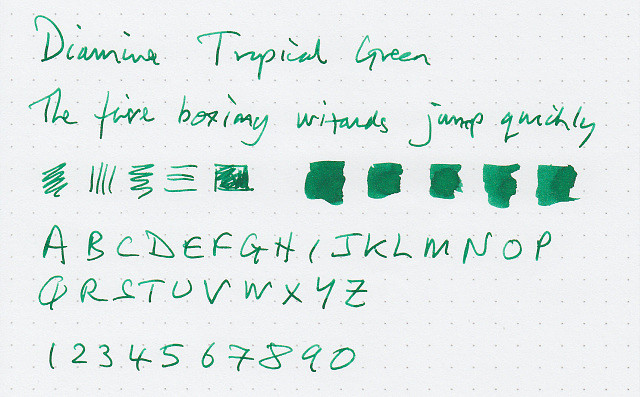 Diamine Tropical Green
The five boxing wizards jump quickly
A B C D E F G H I J K L M N O P
Q R S T U V W X Y Z
1 2 3 4 5 6 7 8 9 0